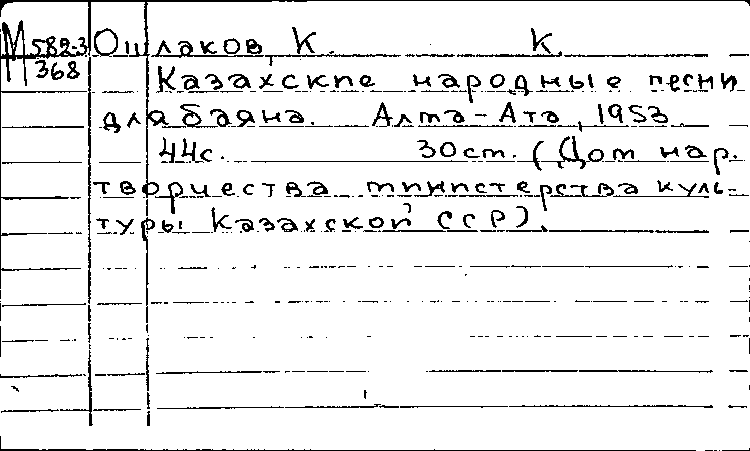 М 582-3 Ошлаков, К. К.
368 Казахские народные песни
для баяна. Алма-Ата, 1953.
44с. 30см. (Дом нар.
творчества министерства куль-
туры Казахской ССР).